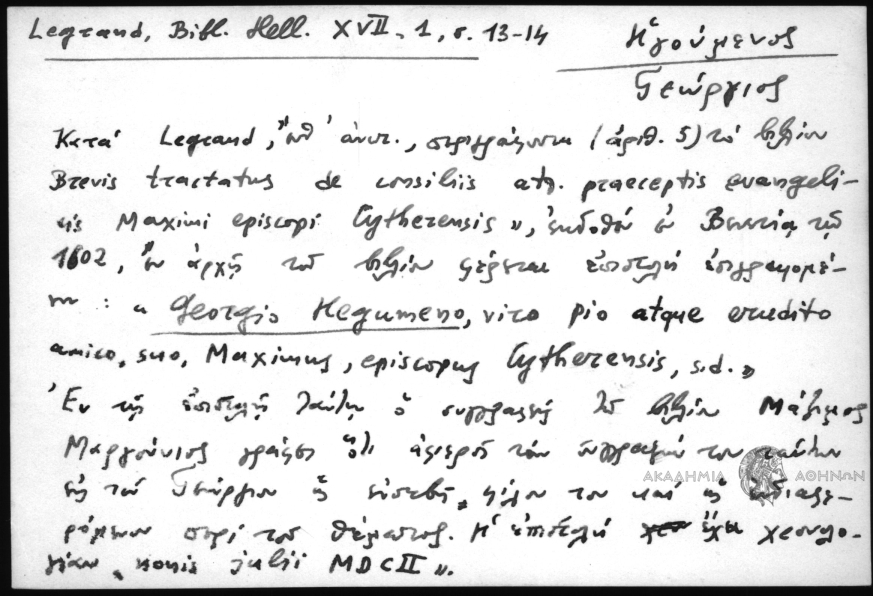 Legrand, Bibl. Hell. XVII, 1, σ. 13-14
Ἡγούμενος
Γεώργιος
Κατά Legrand, ἀνωτ., περιγράφοντα (ἀριθ. 5) τό βιβλίον
Brevis tractatus de consiliis atq. praeceptis evangeli-
cis Maximi episcopi Cytherensis», ἐκδοθέν ἐν Βενετίᾳ τῷ
1602, "ἐν ἀρχῇ τοῦ βιβλίου φέρεται ἐπιστολή ἐπιγραφομέ-
νη : « Georgio Hegumeno, viro pio atque erudito
amico, suo, Maximus, episcopus Cytherensis, s.d.»
Ἐν τῇ ἐπιστολῇ ταύτῃ ὁ συγγραφεύς τοῦ βιβλίου Μάξιμος
Μαργούνιος γράφει ὅτι ἀφιεροῖ τήν συγγραφήν του ταύτην
εἰς τόν Γεώργιον ὡς εὐσεβῆ, φίλον του καί ὡς ἐνδιαφε-
ρόμενον περί τοῦ θέματος. Ἡ ἐπιστολή ἔχει χρονολο-
γίαν „ nonis julii MDCII ".
ΑΚΑΔΗΜΙΑ ΑΘΗΝΩΝ